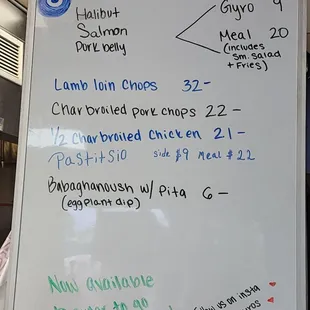 Halibut
Salmon
Pork belly
Gyro 9
Meal 20
(includes
sm. salad
+ Fries)
Lamb loin Chops 32-
Charbroiled pork chops 22-
1/2 Charbroiled Chicken 21-
Pastitsio side $9 Meal $22
Babaghanoush w/ Pita 6-
(eggplant dip)
Now available
to go
us on insta